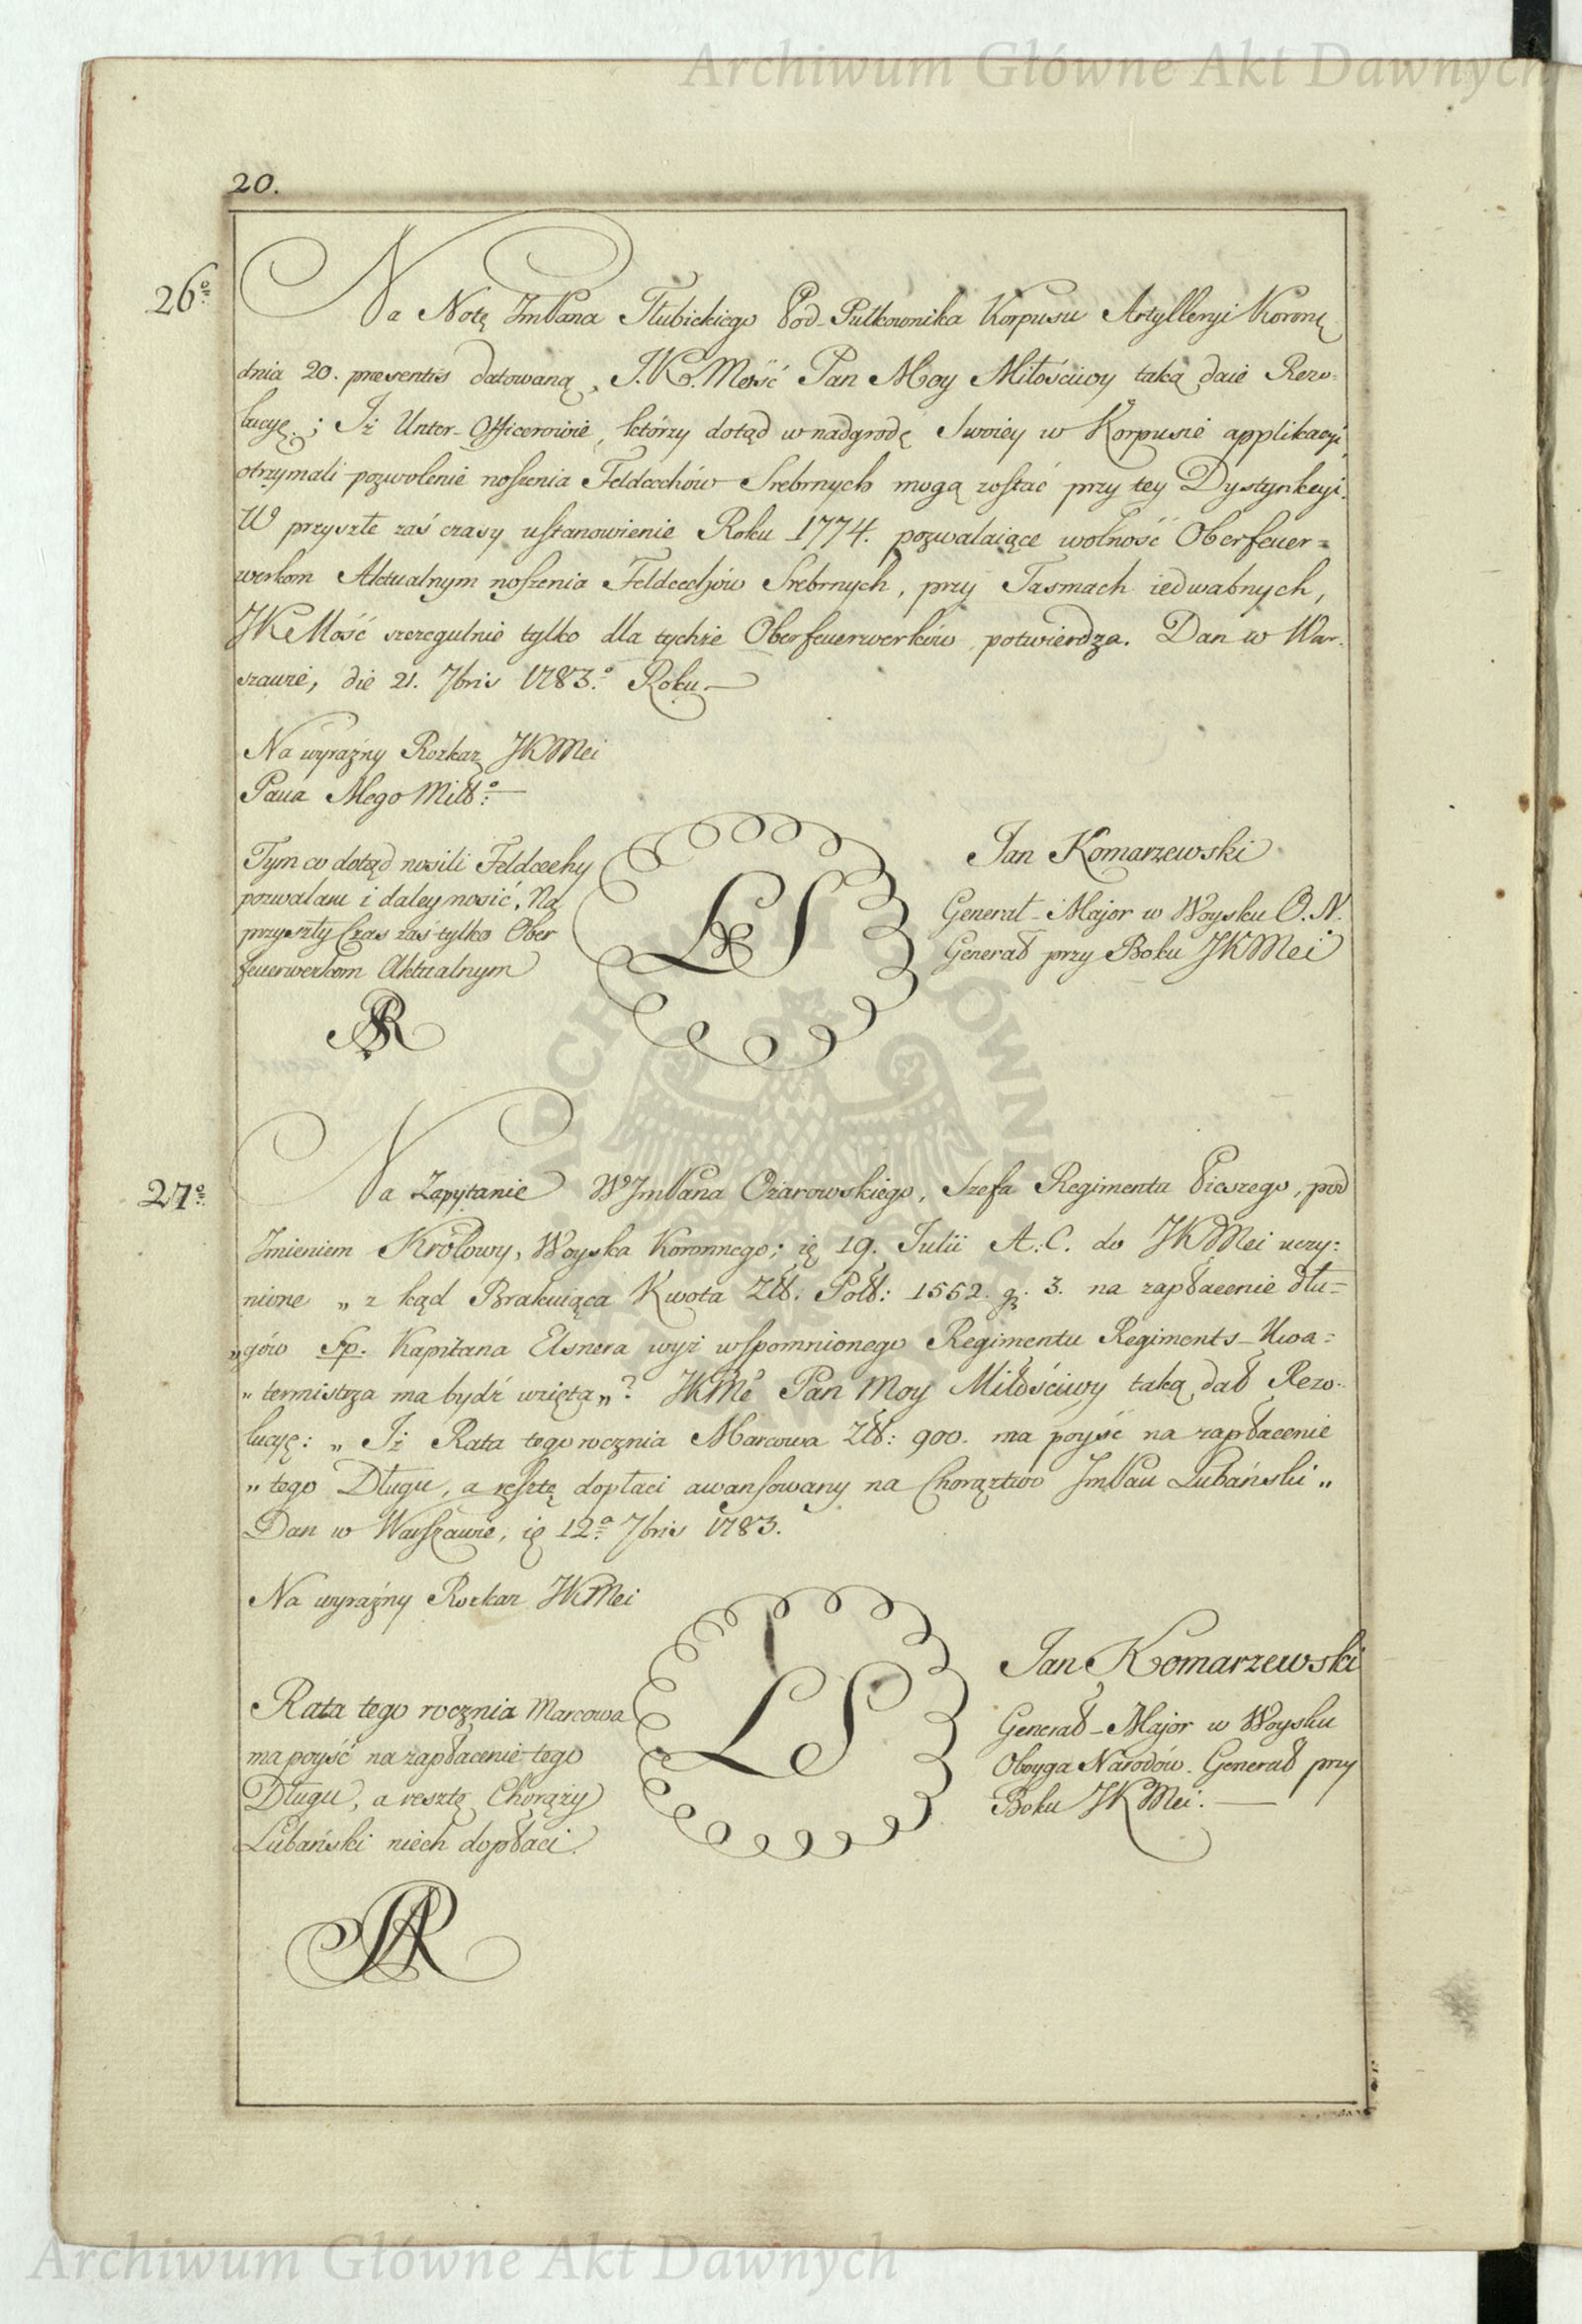 Archiwum Główne Akt Dawnych
20.
26º
Na Notę JmPana Tłubickiego Pod-Pułkownika Korpusu Artylleryi Koronę
dnia 20. præsentis datowaną, J.K.Mość Pan Moy Miłościwy taką daie Rezo-
lucyę; Iż Unter-Officerowie, którzy dotąd w nadgrodę Swoiey w Korpusie applikacyi
otrzymali pozwolenie noszenia Feldcechów Srebrnych mogą zostać przy tey Dystynkcyi.
W przyszłe zaś czasy ustanowienie Roku 1774. pozwalaiące wolność Oberfeuer=
werkom Aktualnym noszenia Feldcechów Srebrnych, przy Tasmach iedwabnych,
JKMość szczegulnie tylko dla tychże Oberfeuerwerków potwierdza. Dan w War-
szawie, die 21. 7bris 1783.º Roku.—
Na wyraźny Rozkaz JKMci
Pana Mego Miłº:—
Tym co dotąd nosili Feldcechy
pozwalam i daley nosić, Na
przyszły Czas zaś tylko Ober
feuerwerkom Aktualnym
SAR
LS
Jan Komarzewski
Generał-Major w Woysku O.N.
Generał przy Boku JKMci
27º
Na Zapytanie WJmPana Ożarowskiego, Szefa Regimentu Pieszego, pod
Imieniem Królowy, Woyska Koronnego; ię 19. Julii A.C. do JKMci uczy:
nione „ z kąd Brakuiąca Kwota Złł: Poll: 1552. g: 3. na zapłacenie dłu=
„gów śp. Kapitana Elsnera wyż wspomnionego Regimentu Regiments-Kwa=
„ termistrza ma bydź wzięta„? JKMć Pan Moy Miłościwy taką dał Rezo-
lucyę: „ Iż Rata tego rocznia Marcowa Złł: 900. ma poyść na zapłacenie
„ tego Długu, a resztę dopłaci awansowany na Chorąztwo JmPan Lubański „
Dan w Warszawie, ię 12ª 7bris 1783.
Na wyraźny Rozkaz JKMci
Rata tego rocznia Marcowa
ma poyść na zapłacenie tego
Długu, a resztę Chorąży
Lubański niech dopłaci.
SAR
LS
Jan Komarzewski
Generał-Major w Woysku
Oboyga Narodów. Generał przy
Boku JKMci.—
Archiwum Główne Akt Dawnych